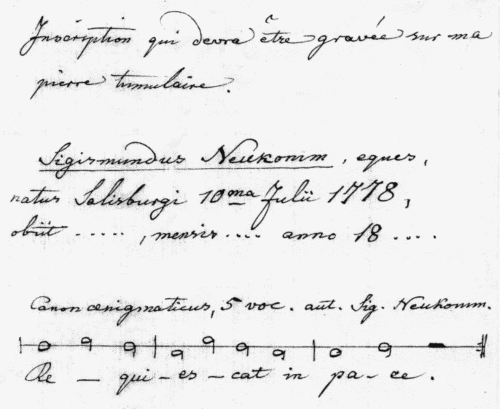 Inscription qui devra être gravée sur ma
pierre tumulaire.
Sigismundus Neukomm, eques,
natus Salisburgi 10ma Julii 1778,
obiit ....., mensis .... anno 18 ....
Canon ænigmaticus, 5 voc. aut. Sig. Neukomm.
Re — qui-es-cat in pa-ce.